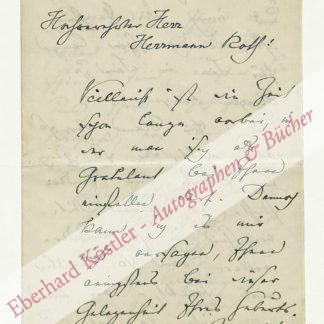 Hochverehrter Herr
Herrmann Roth!
Vielleicht ist die Zeit
schon lange vorbei, in
der man sich als
Gratulant bei Ihnen
einstellen Dennoch
kann ich es mir
versagen, Ihnen
wenigstens bei dieser
Gelegenheit Ihres Geburts-
Eberhard Köstler - Autographen & Bücher